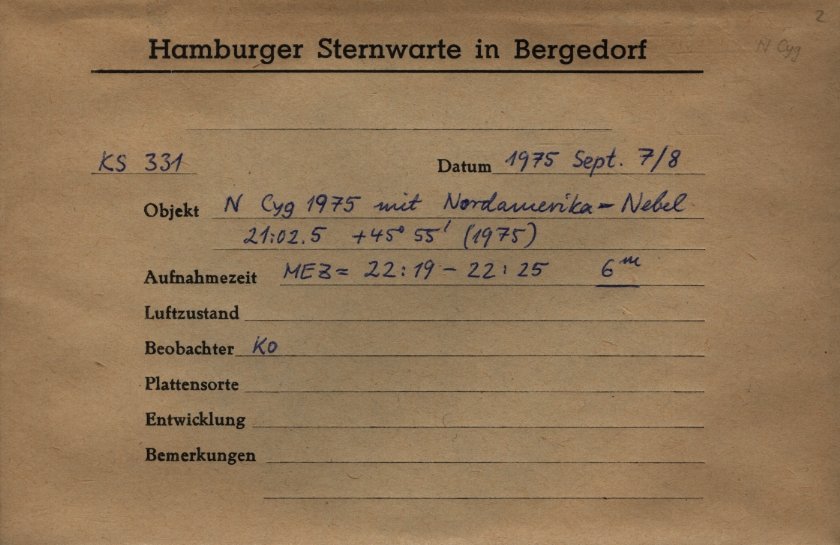 2
N Cyg
Hamburger Sternwarte in Bergedorf
KS 331 Datum 1975 Sept. 7/8
Objekt N Cyg 1975 mit Nordamerika-Nebel
21:02.5 +45° 55' (1975)
Aufnahmezeit MEZ = 22:19 - 22:25 6ᵐ
Luftzustand
Beobachter KO
Plattensorte
Entwicklung
Bemerkungen